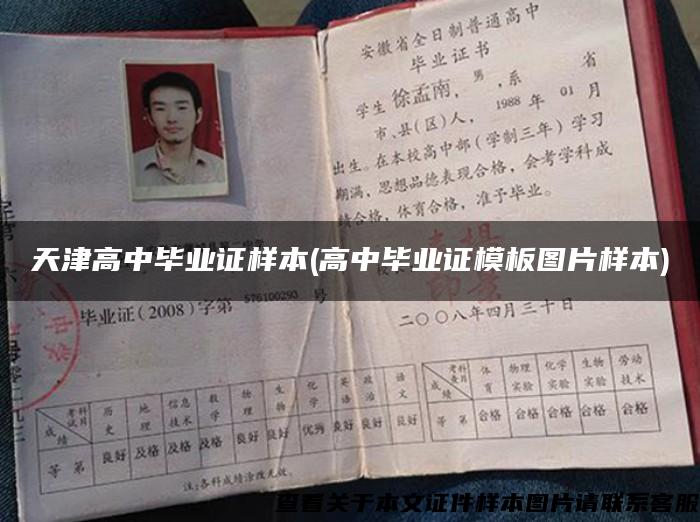 安徽省全日制普通高中
毕业证书
学生徐孟南，男，系 省
市、县(区)人，1988年01月
出生。在本校高中部(学制三年)学习
期满，思想品德表现合格，会考学科成
绩合格，体育合格，准予毕业。
天津高中毕业证样本(高中毕业证模板图片样本)
毕业证(2008)字第576100293号
二〇〇八年四月三十日
考试科目 历史 地理 信息技术 数学 物理 生物 化学 英语 政治 语文
成绩
等第 良好 及格 及格 及格 良好 良好 优秀 良好 良好 良好
注:各科成绩涂改无效。
考查科目 体育 物理实验 化学实验 生物实验 劳动技术
成绩
等第 合格 合格 合格 合格 合格
查看关于本文证件样本图片请联系客服